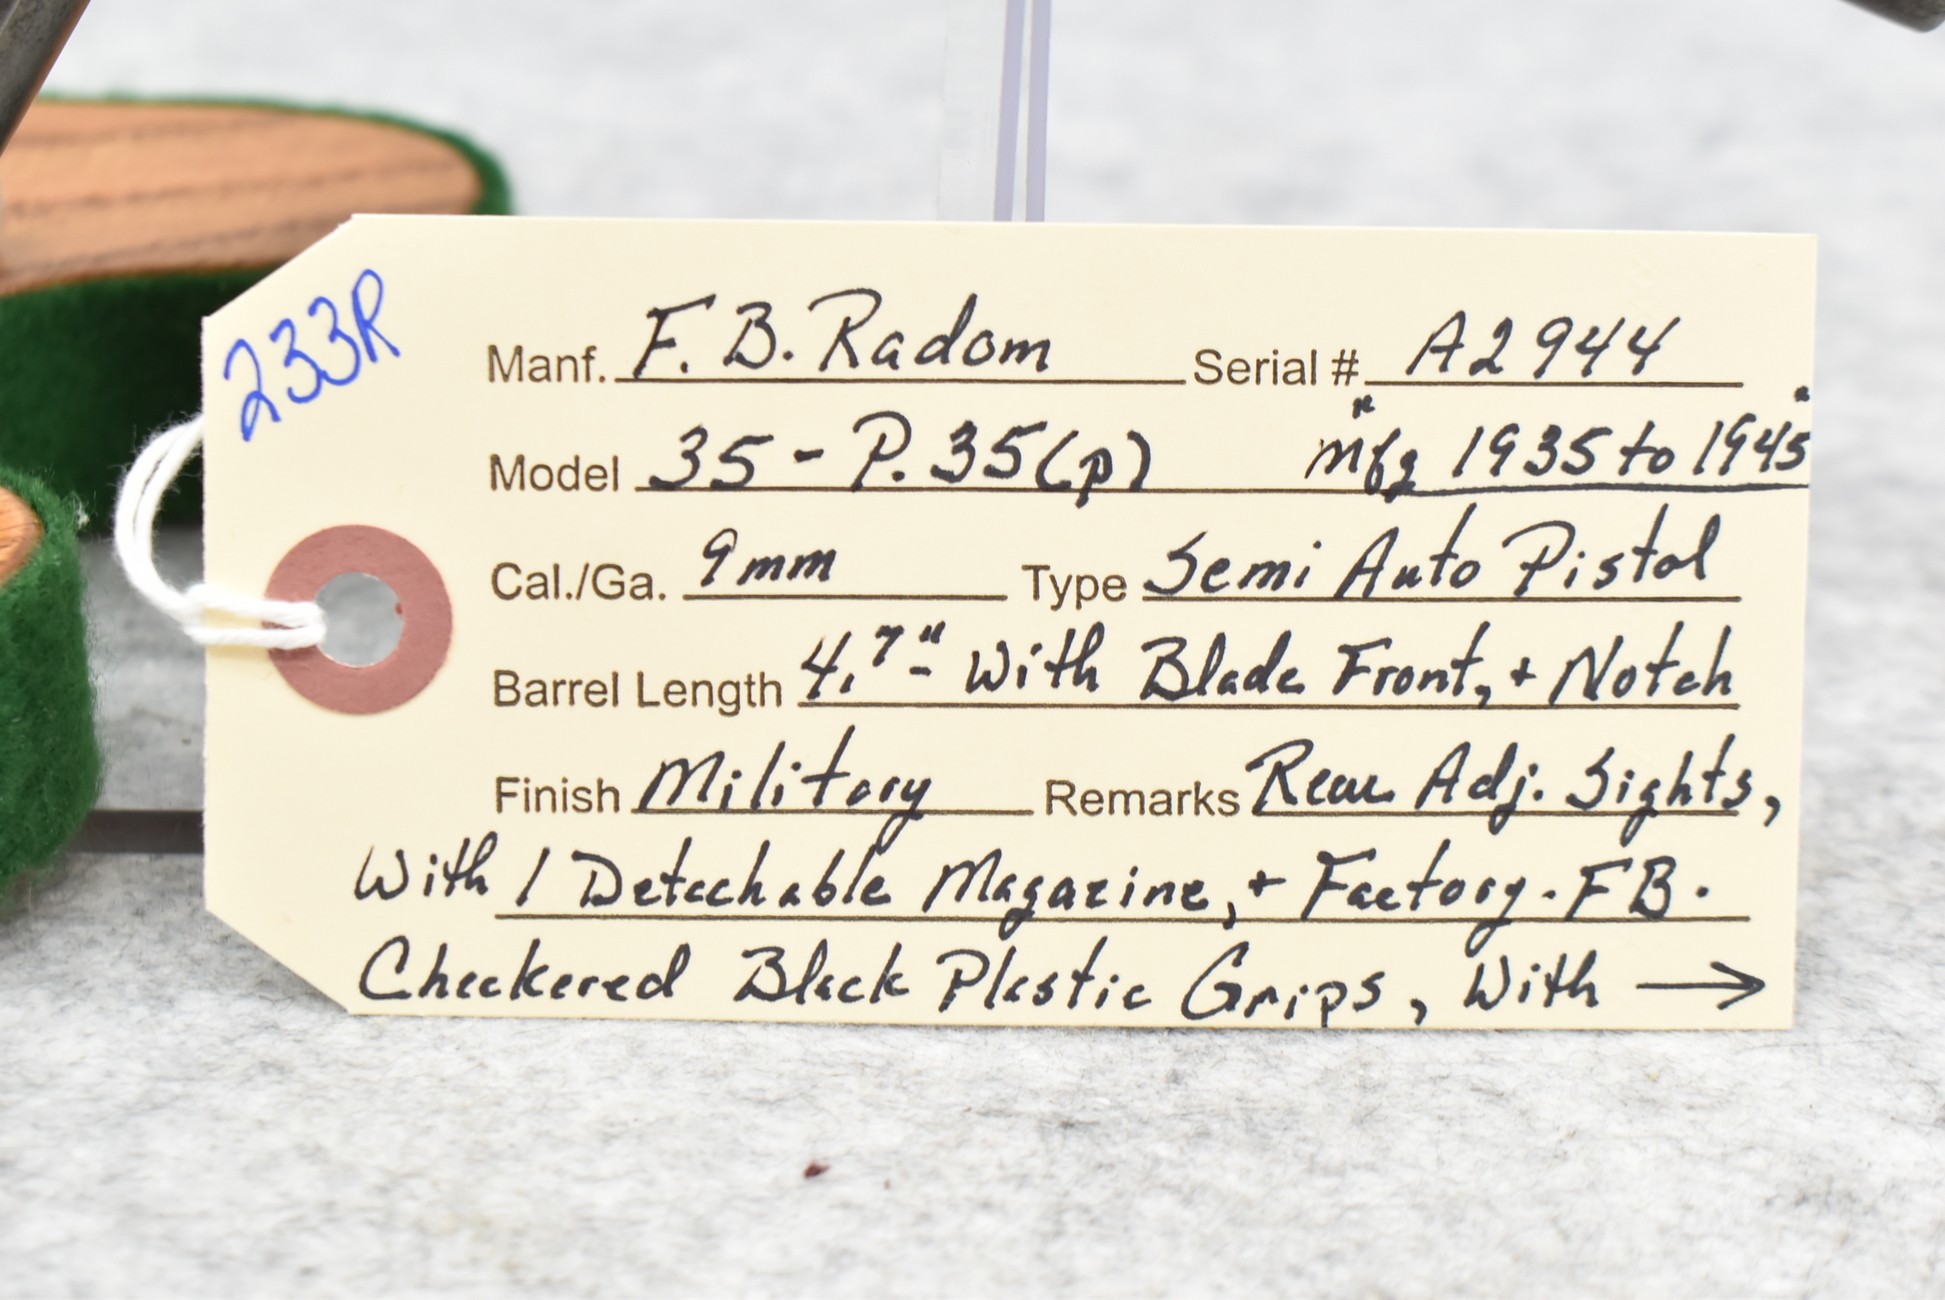 233R
Manf. F. B. Radom Serial # A2944
Model 35 - P. 35(p) "Mfg 1935 to 1945"
Cal./Ga. 9mm Type Semi Auto Pistol
Barrel Length 4.7" - With Blade Front, + Notch
Finish Military Remarks Rear Adj. Sights,
With 1 Detachable Magazine, + Factory. FB.
Checkered Black Plastic Grips, With →